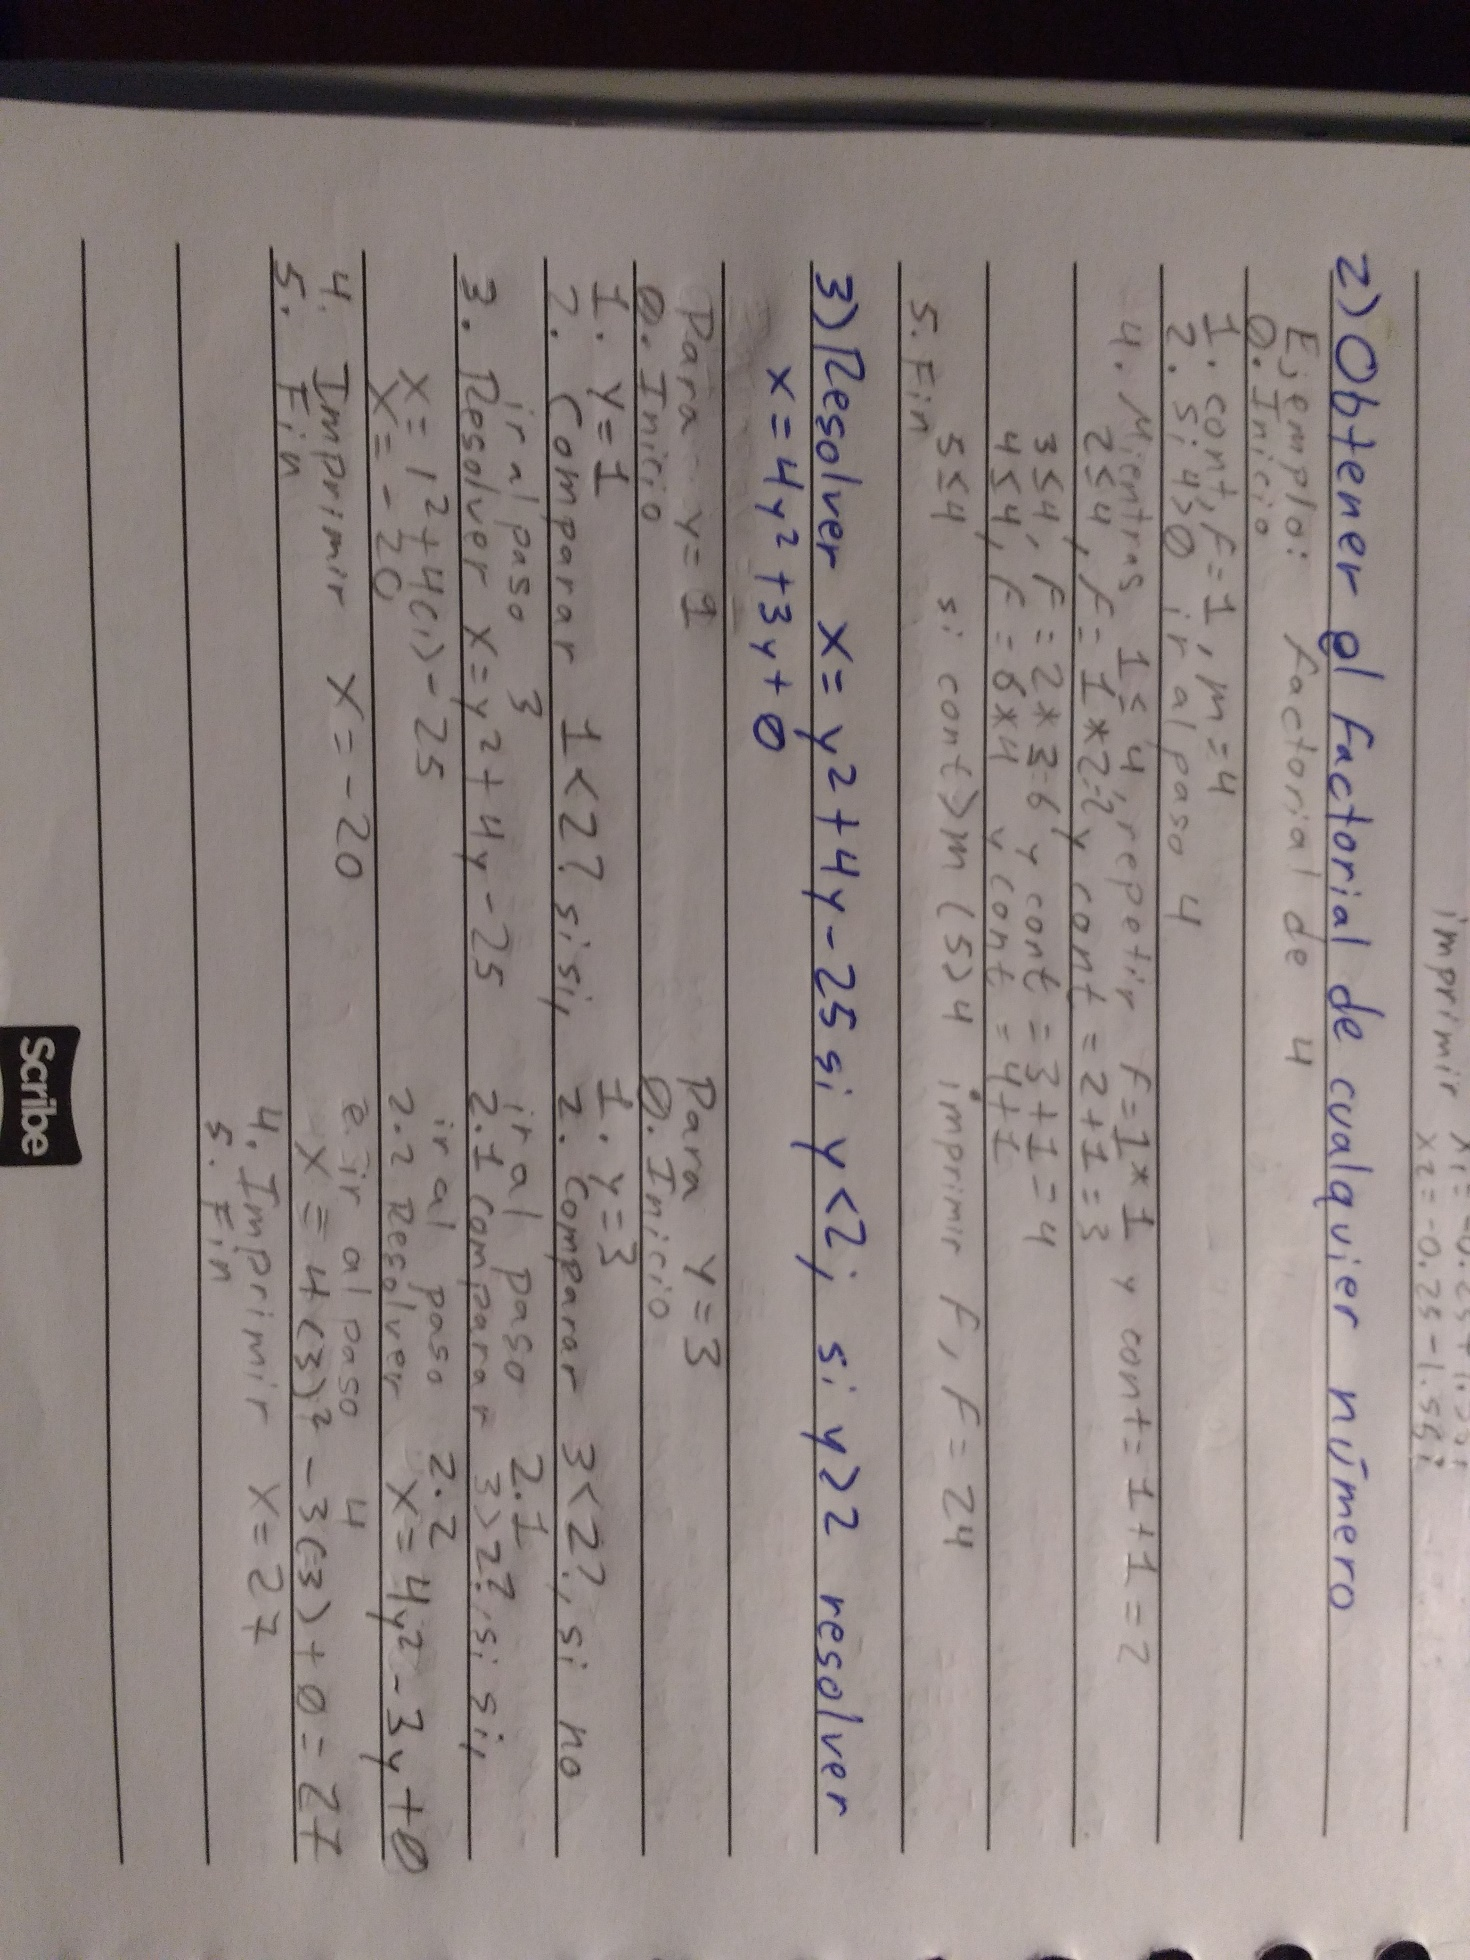 imprimir x1=-0.25+1.56i
x2=-0.25-1.56i
2) Obtener el factorial de cualquier número
Ejemplo: factorial de 4
0. Inicio
1. cont, f=1, m=4
2. Si 4>0 ir al paso 4
4. Mientras 1≤4, repetir f=1*1 y cont=1+1=2
2≤4, f=1*2=2 y cont=2+1=3
3≤4, f=2*3=6 y cont=3+1=4
4≤4, f=6*4 y cont=4+1
5≤4 si cont>m (5>4 imprimir f, f=24
5. Fin
3) Resolver x=y²+4y-25 si y<2; si y≥2 resolver
x=4y²+3y+0
Para y=1
0. Inicio
1. y=1
2. Comparar 1<2? si si,
ir al paso 3
3. Resolver x=y²+4y-25
x=1²+4(1)-25
x=-20
4. Imprimir x=-20
5. Fin
Para y=3
0. Inicio
1. y=3
2. Comparar 3<2?, si no
ir al paso 2.1
2.1 Comparar 3>2?, si si,
ir al paso 2.2
2.2 Resolver x=4y²-3y+0
e ir al paso 4
x=4(3)²-3(3)+0=27
4. Imprimir x=27
5. Fin
Scribe